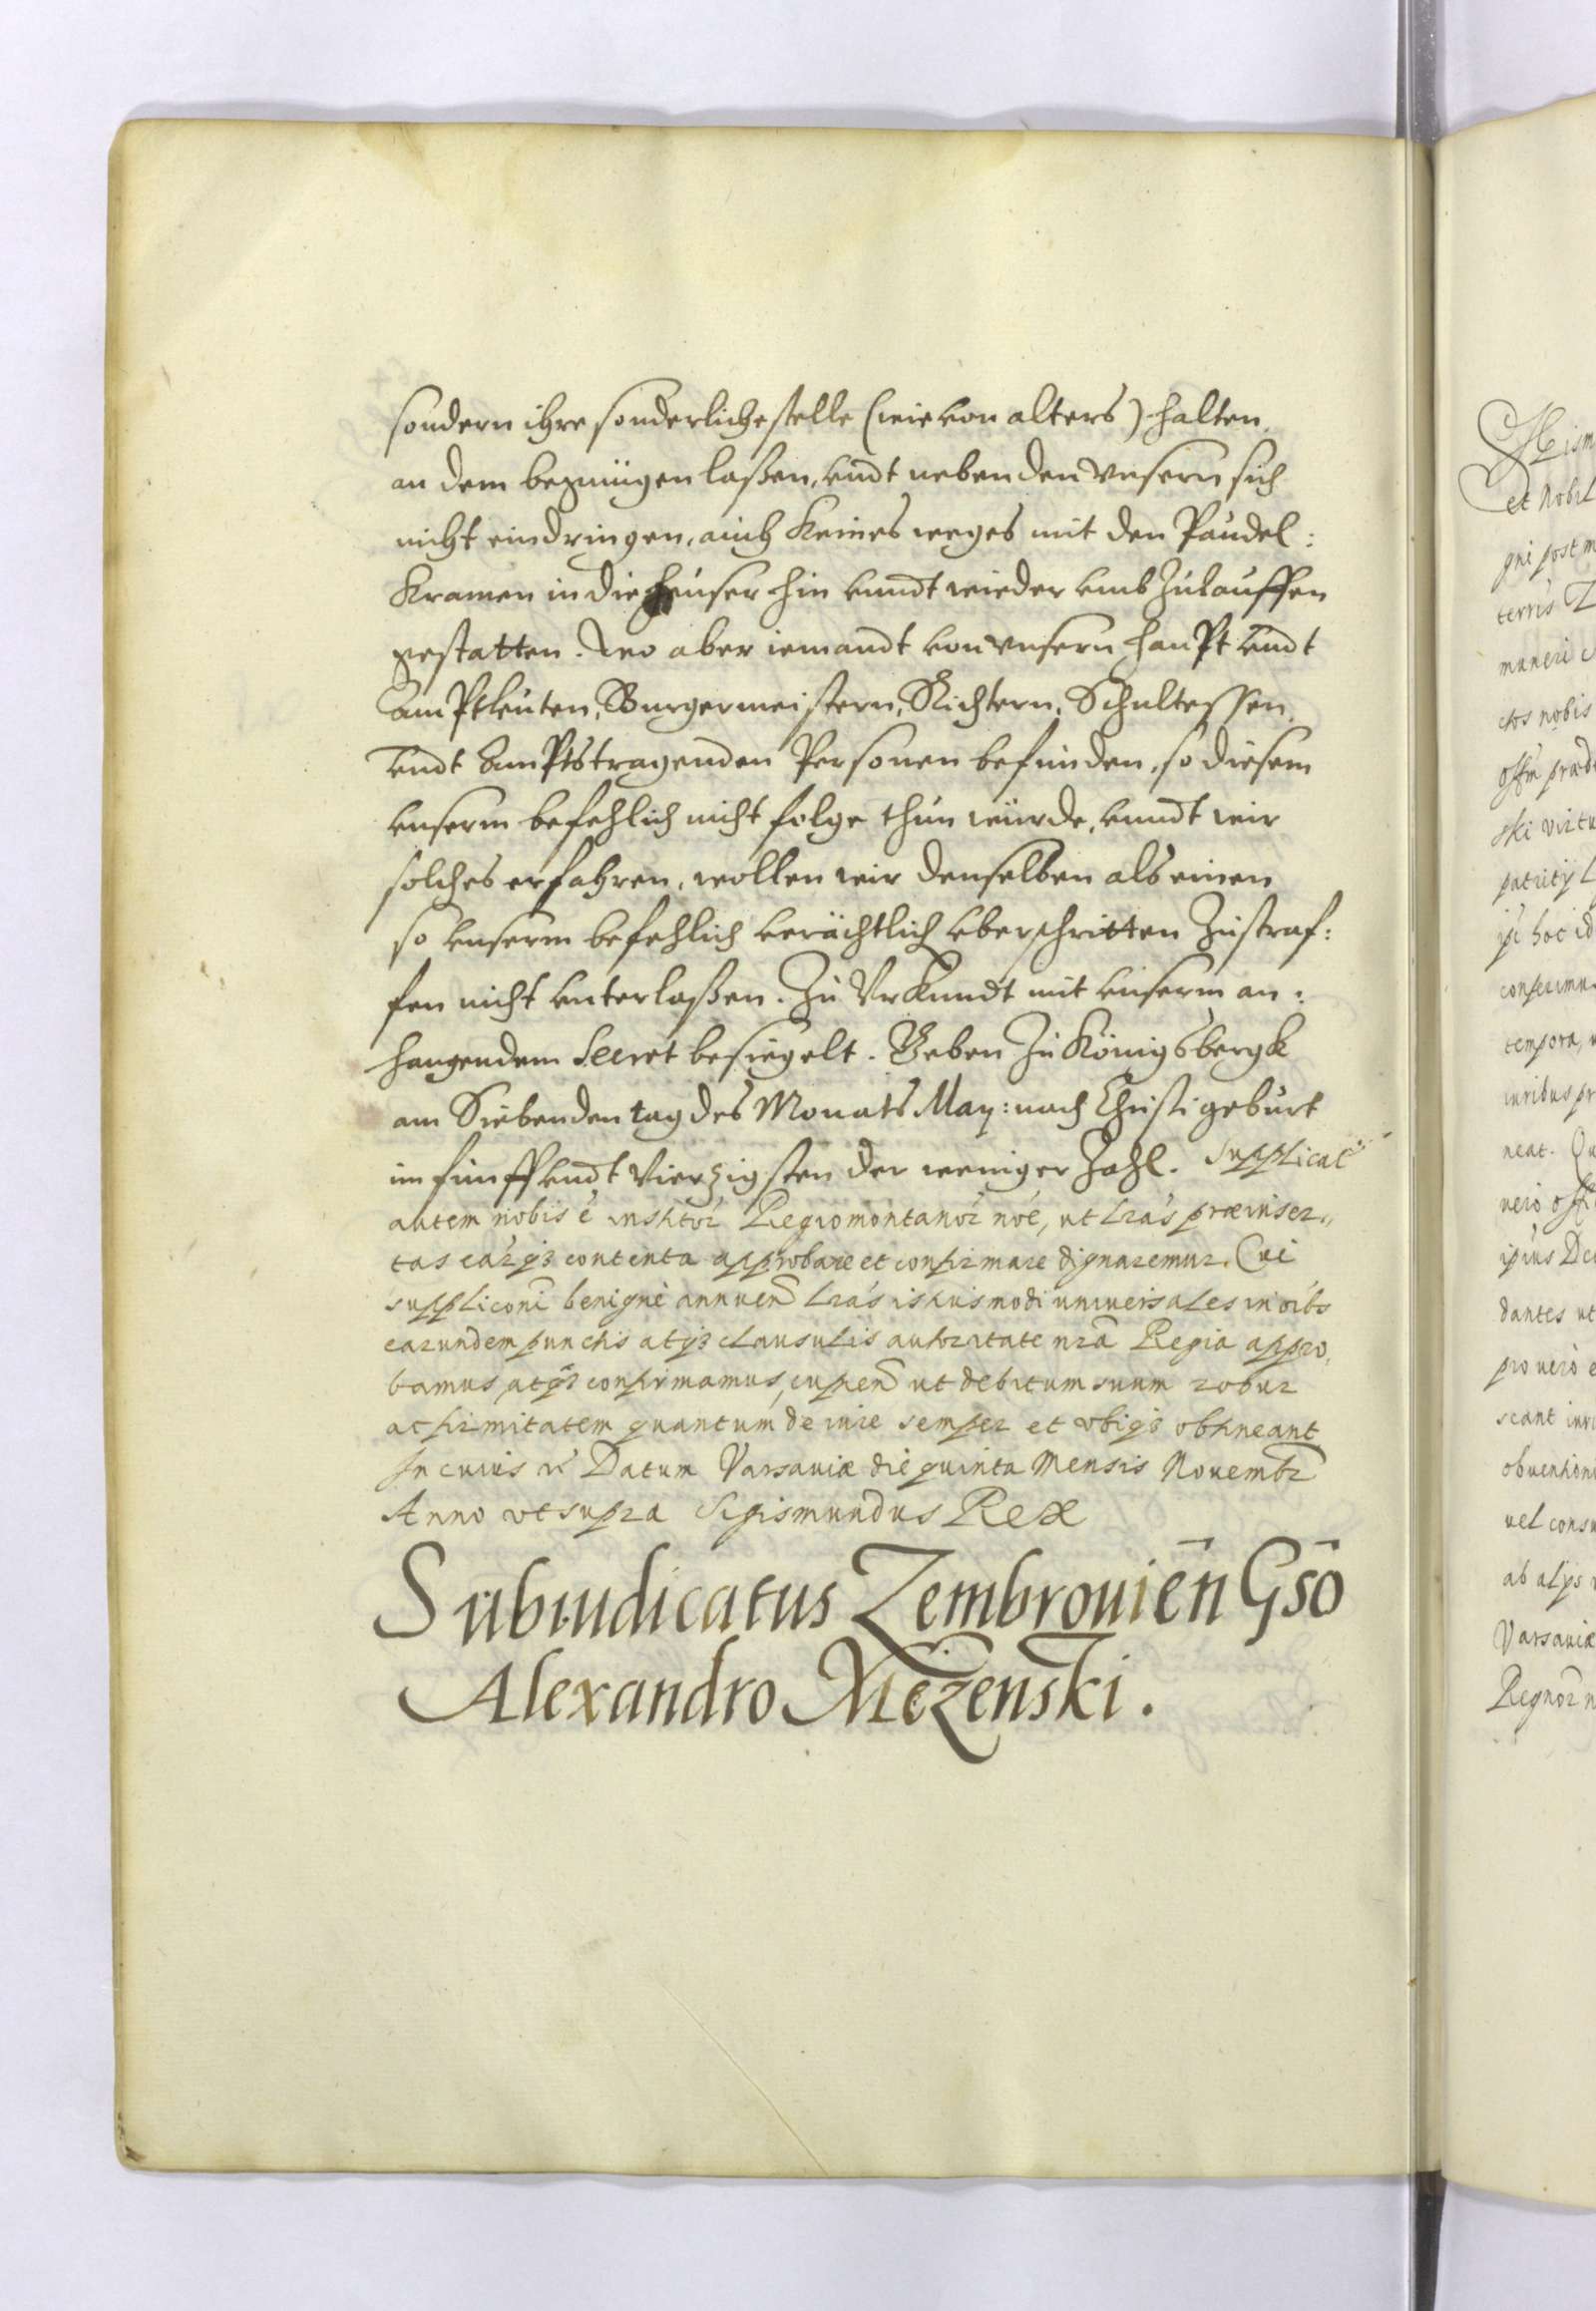 sondern ihre sonderliche stelle (wie von alters) halten,
an dem begnügen laßen, vndt neben den vnsern sich
nicht eindringen, auch keines weges mit den Paudel:
kramen in die heuser hin vnndt wieder vmb zulauffen
gestatten. Wo aber iemandt von vnsern haupt vndt
AmPtleuten, Burgermeistern, Richtern, Schultessen,
vndt AmPtstragenden Personen befunden, so diesem
vnserm befehlich nicht folge thun würde, vnndt wir
solches erfahren, wollen wir denselben als einen
so vnserm befehlich verächtlich vberschritten zustraf:
fen nicht vnterlaßen. Zu Vrkundt mit vnserm an:
hangendem Secret besiegelt. Geben zu Königsbergk
am Siebenden tag des Monats May: nach Christi geburt
im fünff vndt vierzigsten der weniger Zahl. Supplicat
autem nobis é institor Regiomontanor noē, ut lrās præinser„
tas earqz contenta approbare et confirmare dignaremur. Cui
suppliconi benigne annuen lrās istiusmodi uniuersales in oībs
earundem punctis atqz clausulis authoritate nrā Regia appro„
bamus, atqz confirmamus, cupien ut debitum suum robur
ac firmitatem quantum de iure semper et vbiqz obtineant
In cuius rē Datum Varsauiæ die quinta Mensis Nouembr
Anno vt supra Sigismundus Rex
Subiudicatus Zembrouien̄ Gsō
Alexandro Męzenski.
Sigism
et Nobil
gni post m
terris
muneri
ctos nobis
offm præd
ski virtu
patrity
ipi hoc id
conferimus
tempora,
iuribus pr
neat. Qu
vero off
ipius De
dantes ut
pro uero e
scant iur
obuention
vel consu
ab alys
Varsauiæ
Regnor n